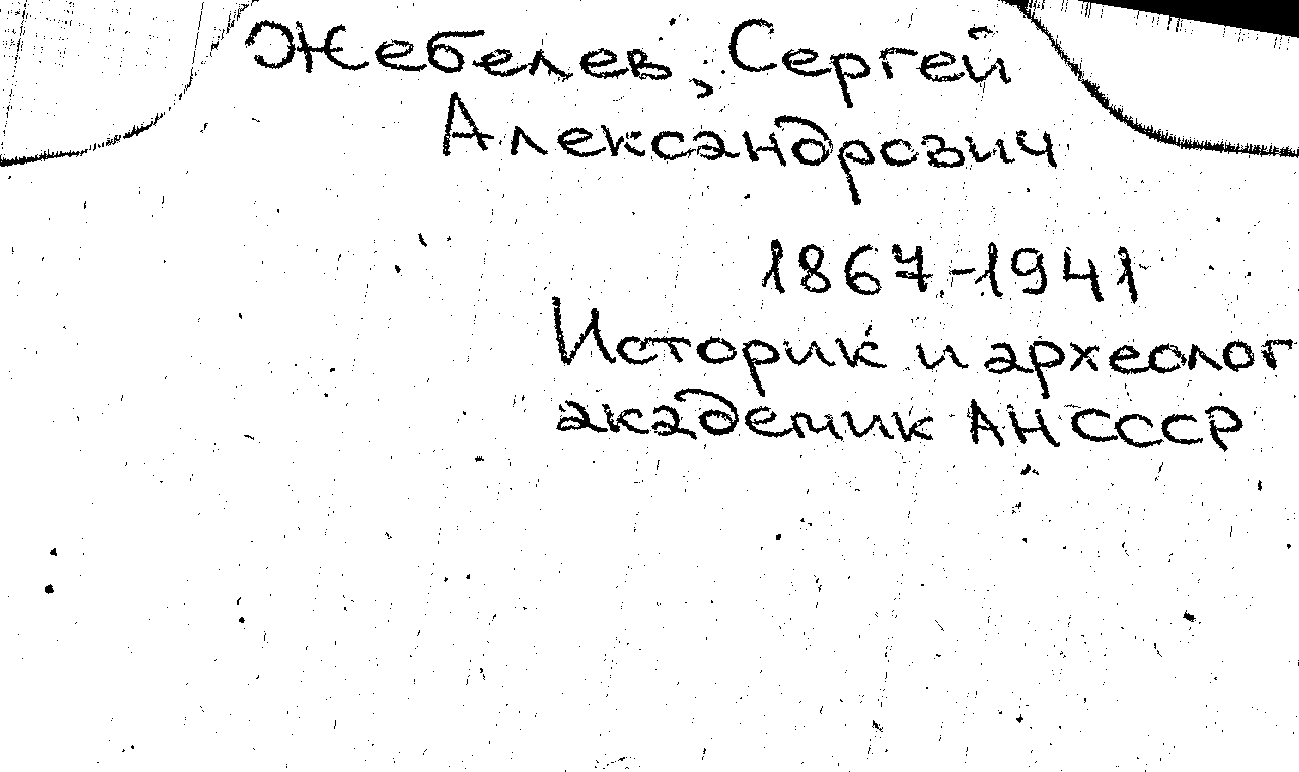 Жебелев, Сергей
Александрович
1867-1941
Историк и археолог
академик АН СССР